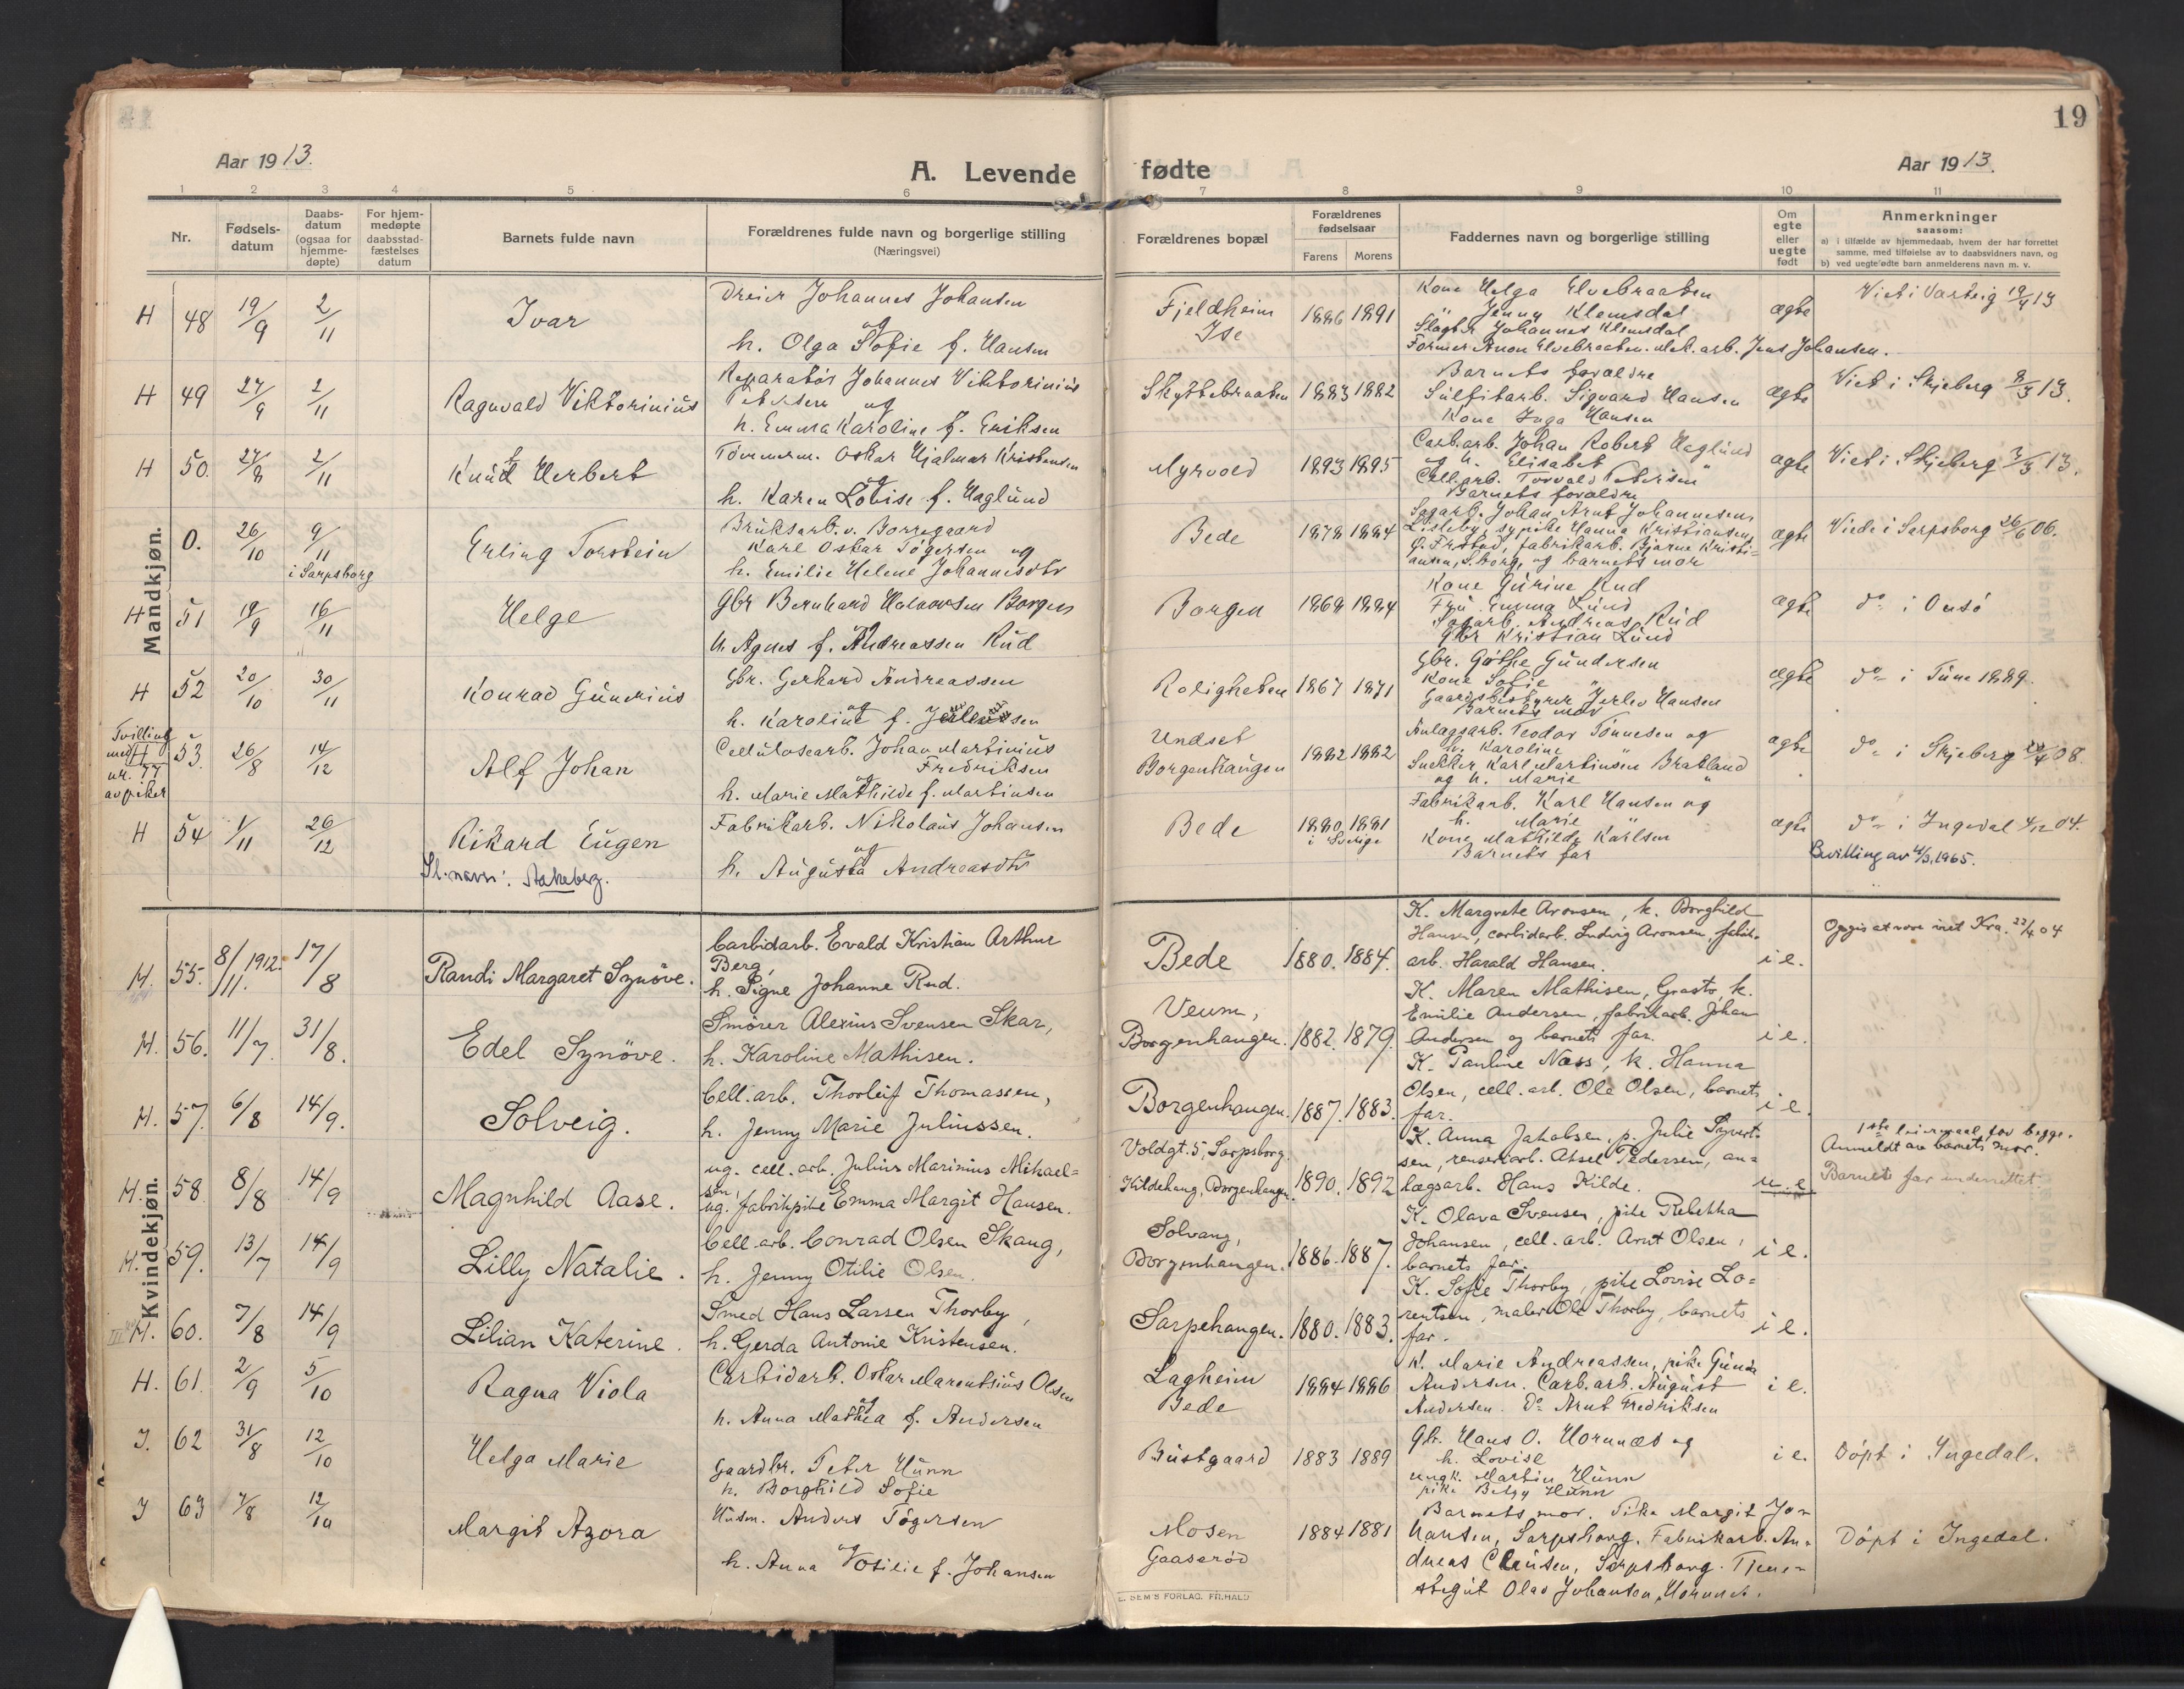 19
Aar 1913.
A. Levende
fødte
Aar 1913.
1 2 3 4 5 6 7 8 9 10 11
Nr.
Fødsels-
datum
Daabs-
datum
(ogsaa for
hjemme-
døpte)
For hjem-
medøpte
daabsstad-
fæstelses
datum
Barnets fulde navn
Forældrenes fulde navn og borgerlige stilling
(Næringsvei)
Forældrenes bopæl
Forældrenes
fødselsaar
Farens Morens
Faddernes navn og borgerlige stilling
Om
egte
eller
uegte
født
Anmerkninger
saasom:
a) i tilfælde av hjemmedaab, hvem der har forrettet
samme, med tilføielse av to daabsvidners navn, og
b) ved uegte fødte barn anmelderens navn m. v.
Mandkjøn.
H 48 19/9 2/11 Ivar
Dreier Johannes Johansen
og
h. Olga Sofie f. Hansen
Fjeldheim
Ise
1886 1891
Kone Helga Elvebraaten
" Jenny Klemsdal
Slagter Johannes Klemsdal
Former Anon Elvebraaten. Mek. arb. Jens Johansen.
ægte
Viet i Varteig 19/4 13
H 49 27/9 2/11 Ragnvald Viktorinius
Reparatör Johannes Viktorinius
Petersen og
h. Emma Karoline f. Eriksen
Skyttebraaten 1883 1882
Barnets forældre
Sulfitarb. Sigvard Hansen
Kone Inga Hansen
ægte
Viet i Skjeberg 8/3 13.
H 50. 27/8 2/11 Knut Herbert
Tömmerm. Oskar Hjalmar Kristensen
og
h. Karen Lovise f. Haglund
Myrvold 1893 1895
Carb.arb. Johan Robert Haglund
og h. Elisabet "
Cell.arb. Torvald Petersen
Barnets forældre
ægte
Viet i Skjeberg 3/3 13.
0. 26/10 9/11
i Sarpsborg
Erling Torstein
Bruksarb. v. Borregaard
Karl Oskar Tögersen og
h. Emilie Helene Johannesdtr
Bede 1878 1884
Sagarb. Johan Arnt Johannesen,
Lisleby, sypike Hanna Kristiansen,
G. Frstad, fabrikarb. Bjarne Kristi-
ansen, S.borg, og barnets mor
ægte
Viede i Sarpsborg 26/6 06.
H 51 19/9 16/11 Helge
Gbr Bernhard Halvorsen Borgen
og
h Agnes f. Andreassen Rud
Borgen 1868 1884
Kone Gurine Rud
Fru Emma Lund
Sagarb. Andreas Rud
Gbr Kristian Lund
ægte
do i Onsö
H 52 20/10 30/11 Konrad Gunerius
Gbr. Gerhard Andreassen
og
h. Karoline f.
Roligheten 1867 1871
Gbr. Göthe Gundersen
Kone Sofie "
Gaardsbestyrer Jerlev Hansen
Barnets mor
ægte
do i Tune 1889.
Tvilling
med H
nr. 77
av piker
53. 26/8 14/12 Alf Johan
Cellulosearb. Johan Martinius
Fredriksen
og
h. Marie Mathilde f. Martinsen
Undset
Borgenhaugen
1882 1882
Anlagsarb. Teodor Tönnesen og
h. Karoline "
Snekker Karl Martinsen Brakland
og h. Marie "
ægte
do i Skjeberg 08
H 54 1/11 26/12 Rikard Eugen
Sl.navn: Aakeberg.
Fabrikarb. Nikolaus Johansen
og
h. Augusta Andreasdtr
Bede 1880. 1881
i Sverige
Fabrikarb. Karl Hansen og
h. Marie "
Kone Mathilde Karlsen
Barnets far
ægte
do i Ingedal 4/12 04.
Bevilling av 4/3, 1965.
Kvindekjøn.
H. 55. 8/11 1912. 17/8 Randi Margaret Synöve.
Carbidarb. Evald Kristian Arthur
Berg,
h. Signe Johanne Rud.
Bede 1880. 1884.
K. Margrete Aronsen, k. Borghild
Hansen, carbidarb. Ludvig Aronsen, fabrik-
arb. Harald Hansen.
i e.
Opgis at være viet Kra. 22/4 04
H. 56. 11/7. 31/8. Edel Synöve.
Smörer Alexius Svensen Skar,
h. Karoline Mathisen.
Veum,
Borgenhaugen. 1882. 1879.
K. Maren Mathisen, Græsto, k.
Emilie Andersen, fabrikarb. Johan
Andersen og barnets far.
i e.
H. 57. 6/8 14/9. Solveig.
Cell.arb. Thorleif Thomassen,
h. Jenny Marie Juliussen.
Borgenhaugen. 1887. 1883.
K. Pauline Næss, k. Hanna
Olsen, cell.arb. Ole Olsen, barnets
far.
i e.
H. 58. 8/8 14/9 Magnhild Aase.
ug. cell.arb. Julius Marinius Mikael=
sen,
ug. fabrikpike Emma Margit Hansen.
Voldgt. 5, Sarpsborg.
Kildehaug, Borgenhaugen. 1890. 1892
K. Anna Jakobsen, p. Julie Syvert-
sen, renseriarb. Aksel Pedersen, an-
lægsarb. Hans Kilde.
u. e.
1ste leiermaal for begge.
Anmeldt av barnets mor.
Barnets far underrettet.
H. 59. 13/7 14/9 Lilly Natalie.
Cell.arb. Conrad Olsen Skaug,
h. Jenny Otilie Olsen.
Solvang,
Borgenhaugen. 1886. 1887.
K. Olava Svensen, pike Rebekka
Johansen, cell.arb. Arnt Olsen,
barnets far.
i e.
H. 60. 7/8 14/9 Lilian Katerine.
Smed Hans Larsen Thorby,
h. Gerda Antonie Kristensen.
Sarpehaugen. 1880. 1883.
K. Sofie Thorby, pike Lovise Lo=
rentsen, maler Ole Thorby, barnets
far.
i e.
H. 61. 2/9 5/10 Ragna Viola
Carbidarb. Oskar Marentsius Olsen
og
h. Anna Mathea f. Andersen
Lagheim
Bede
1884 1886
K. Marie Andreassen, pike Gunda
Andersen. Carb.arb. August
Andersen. do Arnt Fredriksen
i e.
I. 62 31/8 12/10 Helga Marie
Gaardbr. Peter Hunn
h. Borghild Sofie
Bustgaard 1883 1889
Gbr. Hans O. Hornnæs og
h. Lovise
ungk. Martin Hunn
pike Betzy Hunn
i e.
Döpt i Ingedal.
I 63 7/8 12/10 Margit Azora
Husm. Anders Tögersen
og
h. Anna Otilie f. Johansen
Mosen
Gaaseröd
1884 1881
Barnets mor. Pike Margit Jo-
hansen, Sarpsborg. Fabrikarb. An-
dreas Clausen, Sarpsborg. Tjene-
stegut Olav Johansen, Hornnes.
Döpt i Ingedal.
E. SEM'S FORLAG. FR.HALD